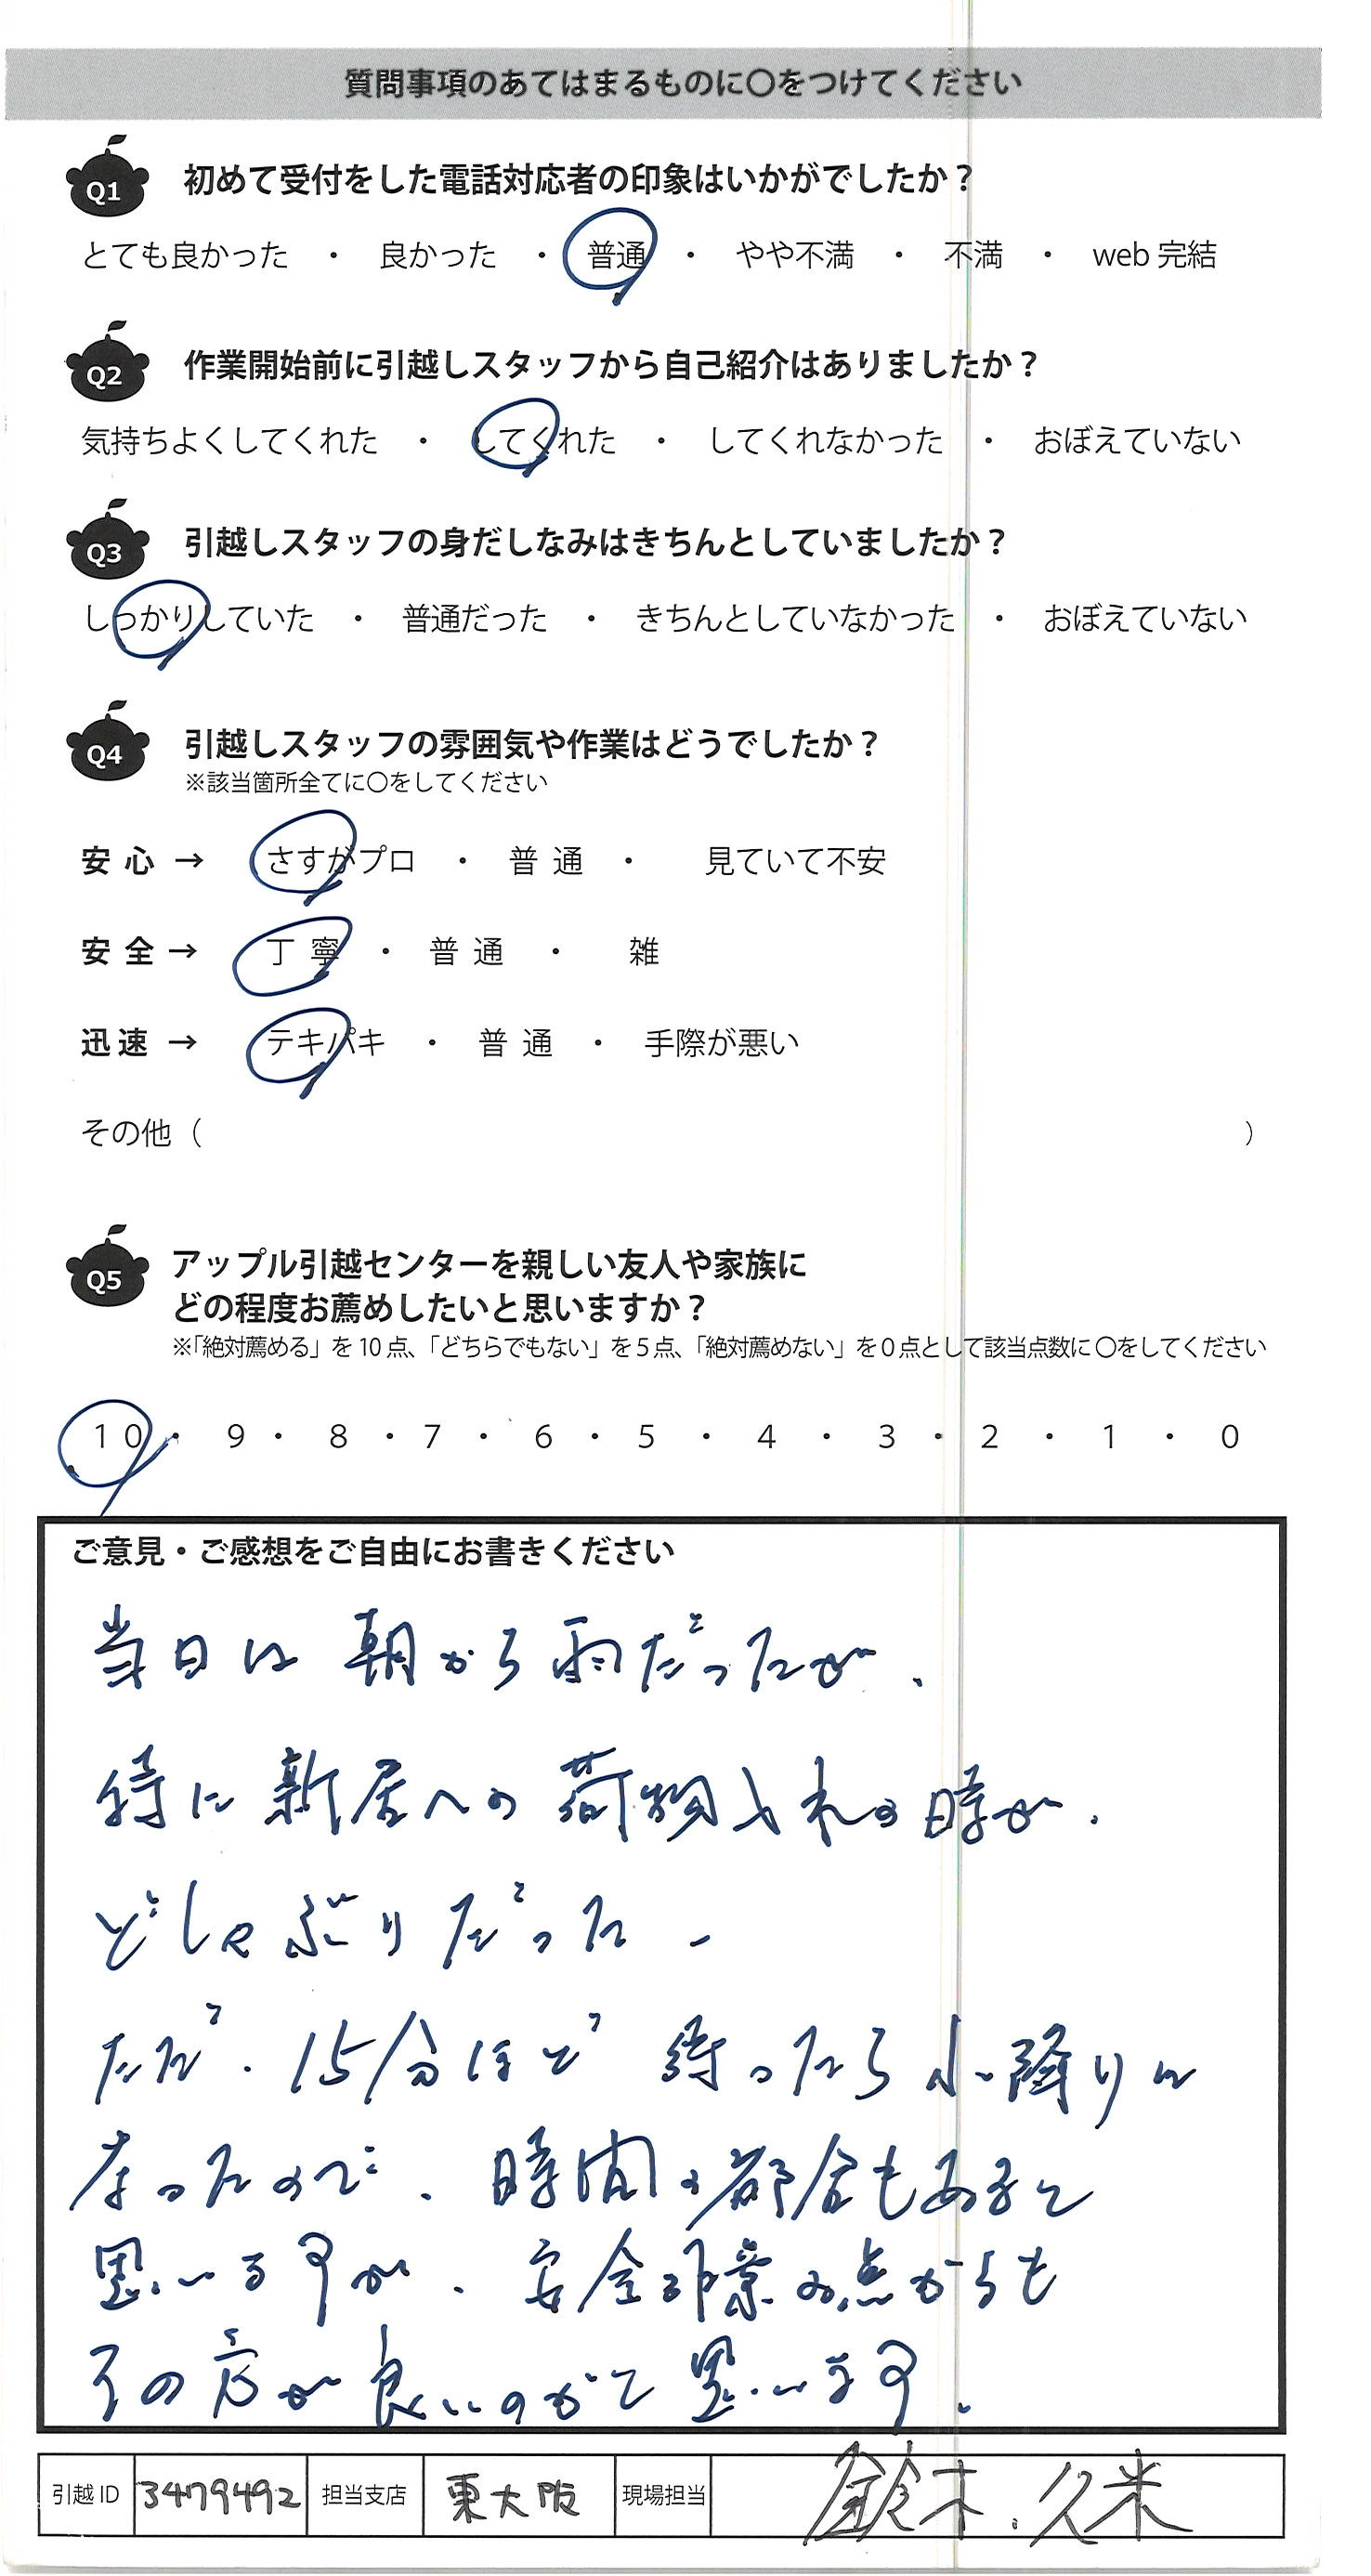 質問事項のあてはまるものに〇をつけてください
Q1 初めて受付をした電話対応者の印象はいかがでしたか？
とても良かった ・ 良かった ・ 普通 ・ やや不満 ・ 不満 ・ web 完結
Q2 作業開始前に引越しスタッフから自己紹介はありましたか？
気持ちよくしてくれた ・ してくれた ・ してくれなかった ・ おぼえていない
Q3 引越しスタッフの身だしなみはきちんとしていましたか？
しっかりしていた ・ 普通だった ・ きちんとしていなかった ・ おぼえていない
Q4 引越しスタッフの雰囲気や作業はどうでしたか？
※該当箇所全てに〇をしてください
安心 → さすがプロ ・ 普通 ・ 見ていて不安
安全 → 丁寧 ・ 普通 ・ 雑
迅速 → テキパキ ・ 普通 ・ 手際が悪い
その他（ ）
Q5 アップル引越センターを親しい友人や家族に
どの程度お薦めしたいと思いますか？
※「絶対薦める」を 10 点、「どちらでもない」を 5 点、「絶対薦めない」を 0 点として該当点数に〇をしてください
10 ・ 9 ・ 8 ・ 7 ・ 6 ・ 5 ・ 4 ・ 3 ・ 2 ・ 1 ・ 0
ご意見・ご感想をご自由にお書きください
当日は朝から雨だったが、
特に新居への荷物入れの時が、
どしゃぶりだった。
ただ、15分ほど待ったら小降りに
なったので、時間の都合もあると
思いますが、安全作業の点からも
その方が良いのかと思います。
引越 ID 3479492 担当支店 東大阪 現場担当 鈴木、久米